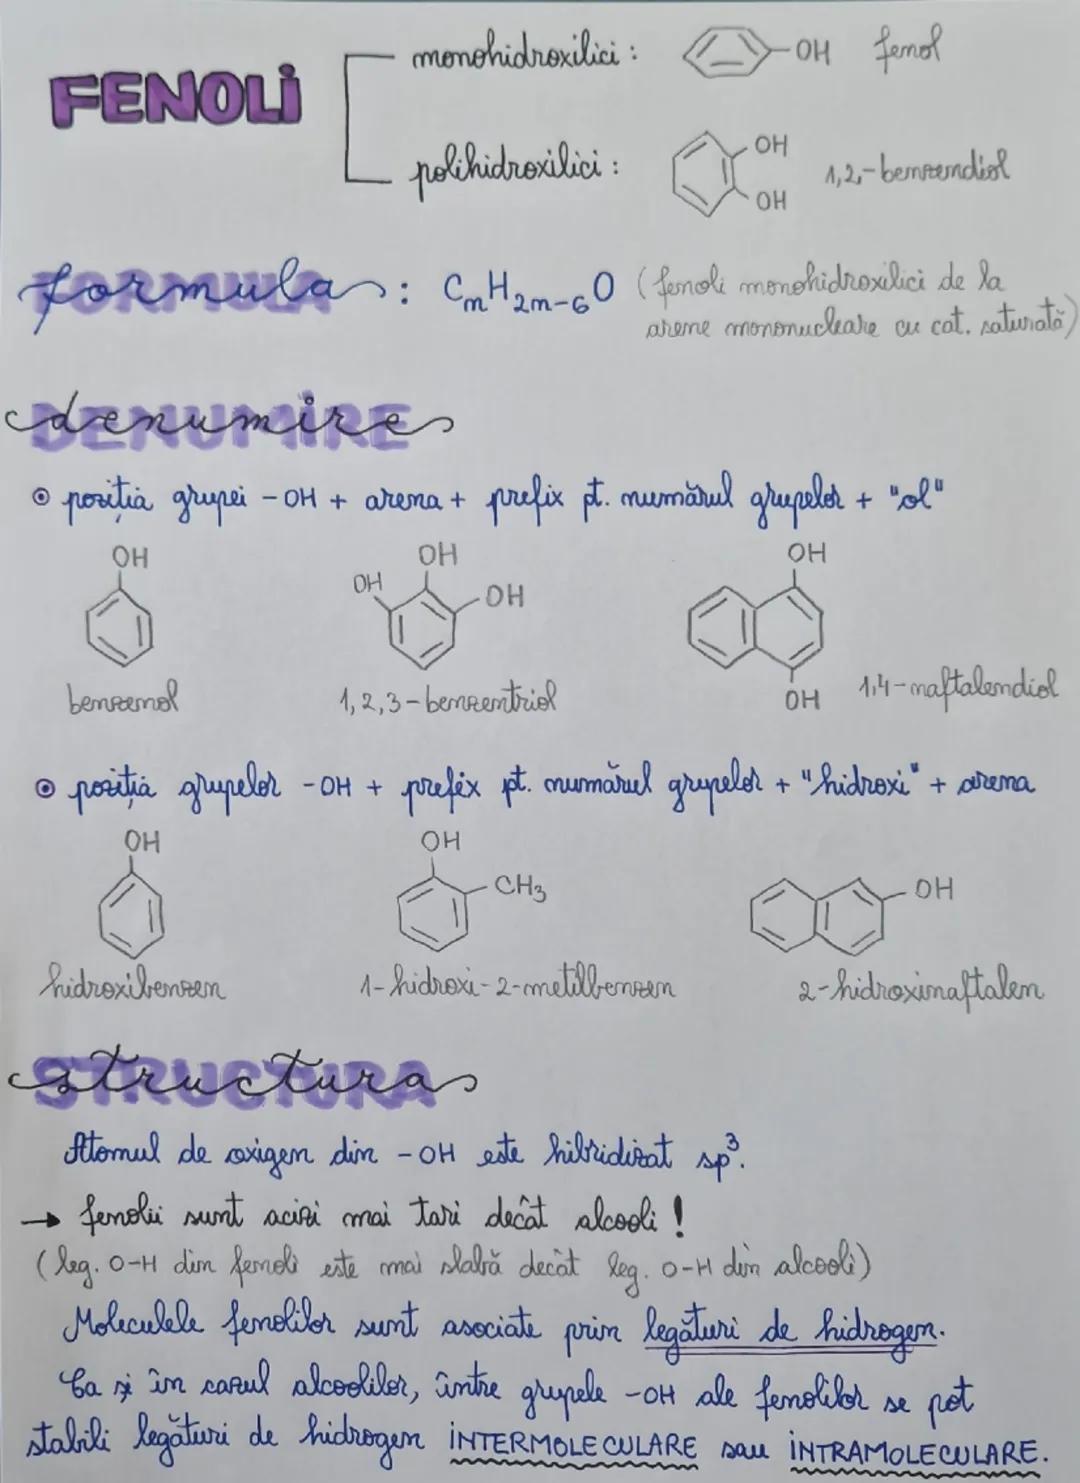 FENOLI
monohidroxilici : -OH fenol
polihidroxilici : OH OH 1,2,-benzendiol
FORMULA
formula : CnH2n-6O (fenoli monohidroxilici de la
arene mononucleare cu cat. saturată)
DENUMIRE
denumire
poziția grupei -OH + arena + prefix pt. numărul grupelor + "ol"
OH OH OH OH OH
benzenol 1,2,3-benzentriol OH 1,4-naftalendiol
poziția grupelor -OH + prefix pt. numărul grupelor + "hidroxi" + arena
OH OH CH3 OH
hidroxibenzen 1-hidroxi-2-metilbenzen 2-hidroxinaftalen
STRUCTURA
structura
Atomul de oxigen din -OH este hibridizat sp³.
→ fenolii sunt acizi mai tari decât alcooli !
(leg. O-H din fenoli este mai slabă decât leg. O-H din alcooli)
Moleculele fenolilor sunt asociate prin legături de hidrogen.
Ca și în cazul alcoolilor, între grupele -OH ale fenolilor se pot
stabili legături de hidrogen INTERMOLECULARE sau INTRAMOLECULARE.